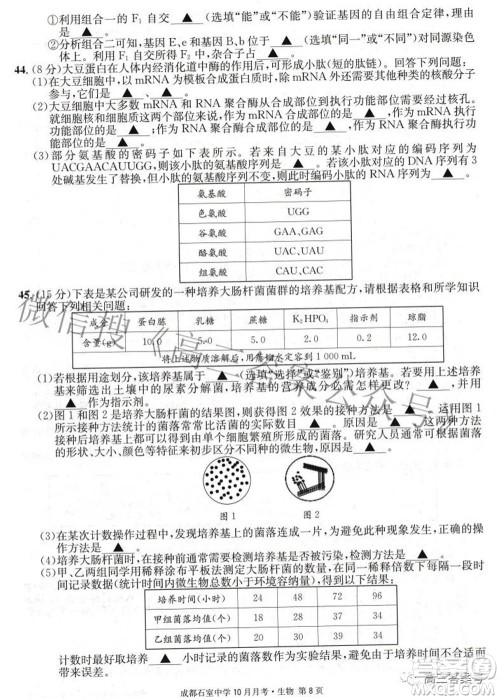 ①利用组合一的 F₁ 自交 ▲ (选填“能”或“不能”)验证基因的自由组合定律，理由
是 ▲ 。
②分析组合二可知，基因 E、e 和基因 B、b 位于 ▲ (选填“同一”或“不同”)对同源染色
体上。利用 F₁ 自交所得 F₂ 中，杂合子占 ▲ 。
44.(8 分)大豆蛋白在人体内经消化道中酶的作用后，可形成小肽(短的肽链)。回答下列问题：
(1)在大豆细胞中，以 mRNA 为模板合成蛋白质时，除 mRNA 外还需要其他种类的核酸分子
参与，它们是 ▲ 、 ▲ 。
(2)大豆细胞中大多数 mRNA 和 RNA 聚合酶从合成部位到执行功能部位需要经过核孔。
就细胞核和细胞质这两个部位来说，作为 mRNA 合成部位的是 ▲ ，作为 mRNA 执行功
能部位的是 ▲ ；作为 RNA 聚合酶合成部位的是 ▲ ，作为 RNA 聚合酶执行功能部
位的是 ▲ 。
(3) 部分氨基酸的密码子如下表所示。若来自大豆的某小肽对应的编码序列为
UACGAACAUUGG，则该小肽的氨基酸序列是 ▲ 。若该小肽对应的 DNA 序列有 3
处碱基发生了替换，但小肽的氨基酸序列不变，则此时编码小肽的 RNA 序列为 ▲ 。
氨基酸 密码子
色氨酸 UGG
谷氨酸 GAA、GAG
酪氨酸 UAC、UAU
组氨酸 CAU、CAC
45.(15 分)下表是某公司研发的一种培养大肠杆菌菌群的培养基配方，请根据表格和所学知识
回答下列相关问题：
成分 蛋白胨 乳糖 蔗糖 K₂HPO₄ 指示剂 琼脂
含量(g) 10.0 5.0 5.0 2.0 0.2 12.0
将上述物质溶解后，用蒸馏水定容到 1 000 mL
(1)若根据用途划分，该培养基属于 ▲ (选填“选择”或“鉴别”)培养基。若要用上述培养
基来筛选出土壤中的尿素分解菌，培养基的营养成分必需怎样更改？ ▲ ，并用
▲ 作为指示剂。
(2)图 1 和图 2 是培养大肠杆菌的结果图，则获得图 2 效果的接种方法是 ▲ ，适用图 1
所示接种方法统计的菌落常常比活菌的实际数目 ▲ 。原因是 ▲ 这两种方法
接种后培养都可以得到由单个细胞繁殖而成的菌落。研究人员通常可根据菌落
的形状、大小、颜色等特征来初步区分不同种的微生物，原因是 ▲ 。
图 1
图 2
(3)在某次计数操作过程中，发现培养基上的菌落连成一片，为避免此种现象发生，正确的操
作方法是 ▲ 。
(4)培养大肠杆菌时，在接种前通常需要检测培养基是否被污染，检测方法是 ▲ 。
(5)甲、乙两组同学用稀释涂布平板法测定大肠杆菌的数量，在同一稀释倍数下每隔一段时
间记录数据(微生物总数小于环境容纳量)，得到以下结果：
培养时间(小时) 24 48 72 96
甲组菌落均值(个) 18 28 37 34
乙组菌落均值(个) 20 32 34 34
计数时最好取培养 ▲ 小时记录的菌落数作为实验结果，这样可以避免 ▲ 。
成都石室中学 10 月月考·生物 第 8 页